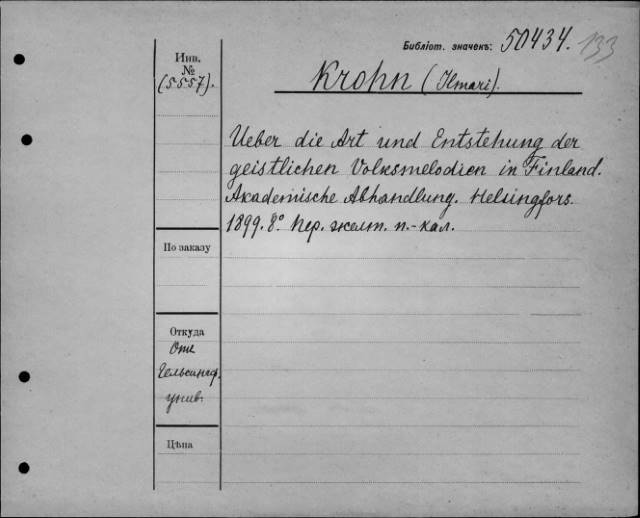 Библіот. значекъ: 50434. 133
Инв.
№
(5557).
Krohn (Ilmari).
Ueber die Art und Entstehung der
geistlichen Volksmelodien in Finland.
Akademische Abhandlung. Helsingfors.
1899. 8º. Пер. желт. п.-кал.
По заказу
Откуда
Отъ
Гельсингф.
унив.
Цѣна